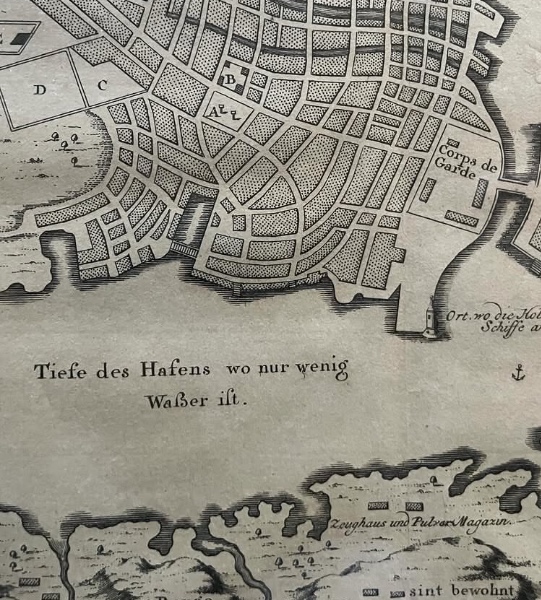 D
C
B
A
Corps de
Garde
Ort. wo die
Schiffe
Tiefe des Hafens wo nur wenig
Waßer iſt.
Zeughaus und Pulver Magazin.
sint bewohnt